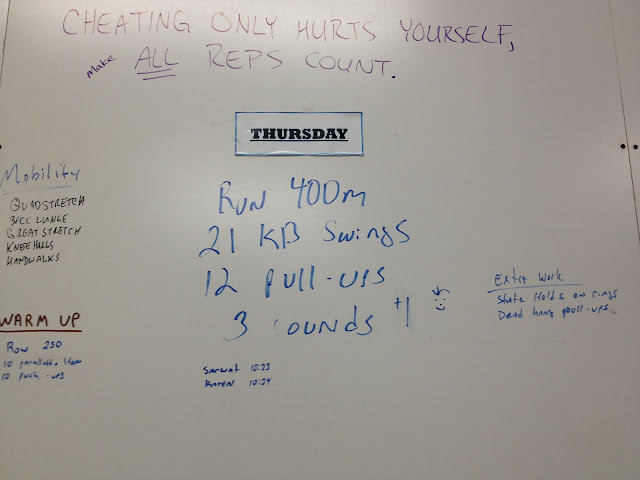 CHEATING ONLY HURTS YOURSELF,
make ALL REPS COUNT.
THURSDAY
Mobility
QUADSTRETCH
BACK LUNGE
GREAT STRETCH
KNEE HUGS
HANDWALKS
WARM UP
Row 250
10
10 push-ups
Run 400m
21 KB Swings
12 pull-ups
3 ounds +1
Sarwat 10:23
Karen 10:24
Extra Work
State Holds on rings
Dead hang pull-ups